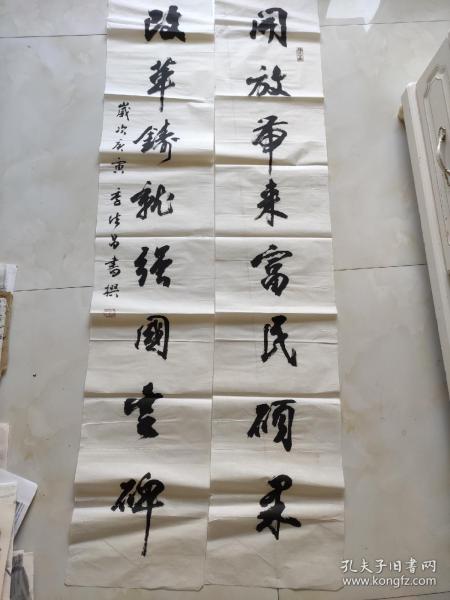 開放帶来富民碩果
改革鑄就強國豐碑
歲次庚寅 李法昌書撰
孔夫子旧书网
www.kongfz.com